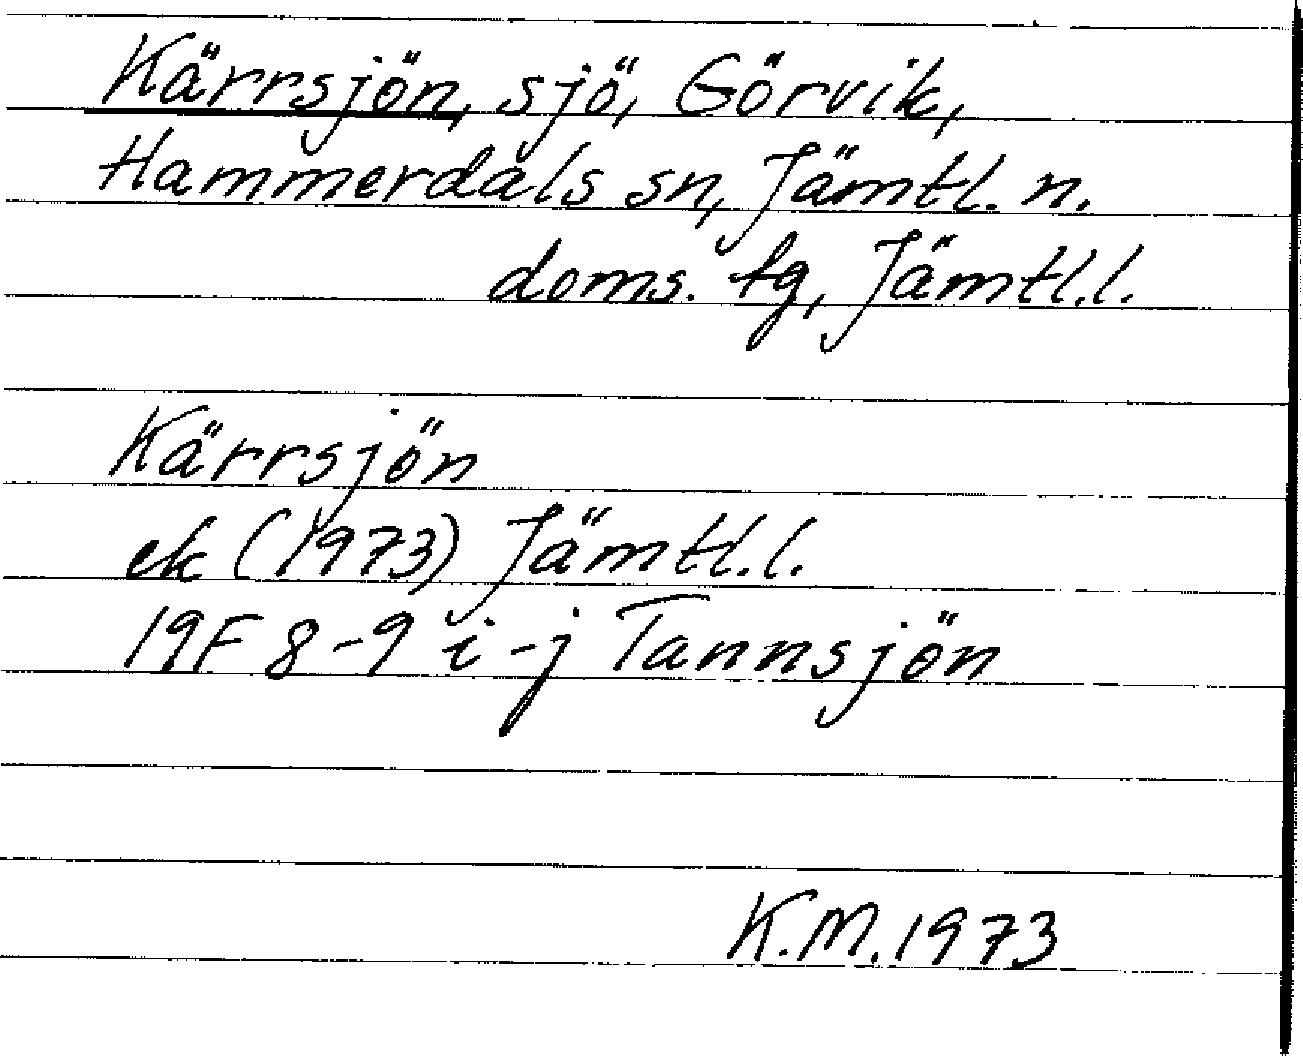 Kärrsjön, sjö, Görvik,
Hammerdals sn, Jämtl. n.
doms. tg, Jämtl.l.
Kärrsjön
ek (1973) Jämtl.l.
19F 8-9 i-j Tannsjön
K.M.1973